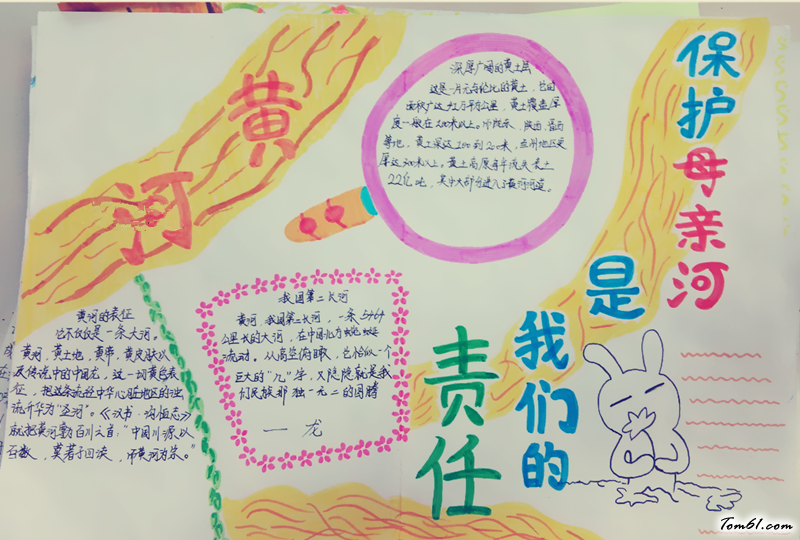 黄河
深厚广阔的黄土层
这是一片无与伦比的黄土，它的
面积广达42万平方公里，黄土覆盖厚
度一般在100米以上。陕西
等地，黄土深达100到200米，兰州地区更
厚达300米以上。黄土高原每年流失表土
22亿吨，其中大部分进入了黄河河道。
保护母亲河
是
我们的
责任
黄河的表征
它不仅仅是一条大河。
黄河、黄土地、黄帝、黄皮肤以
及传说中的中国龙，这一切黄色表
征，把这条流经中华心脏地区的浊
流升华为“圣河”。《汉书·沟恤志》
就把黄河尊为百川之首：“中国川源以
百数，莫著于四渎，而黄河为宗。”
我国第二长河
黄河，我国第二长河，一条5464
公里长的大河，在中国北方蜿蜒
流动。从高空俯瞰，它恰似一个
巨大的“几”字，又隐隐就是我
们民族那独一无二的图腾
— 龙
Tom61.com